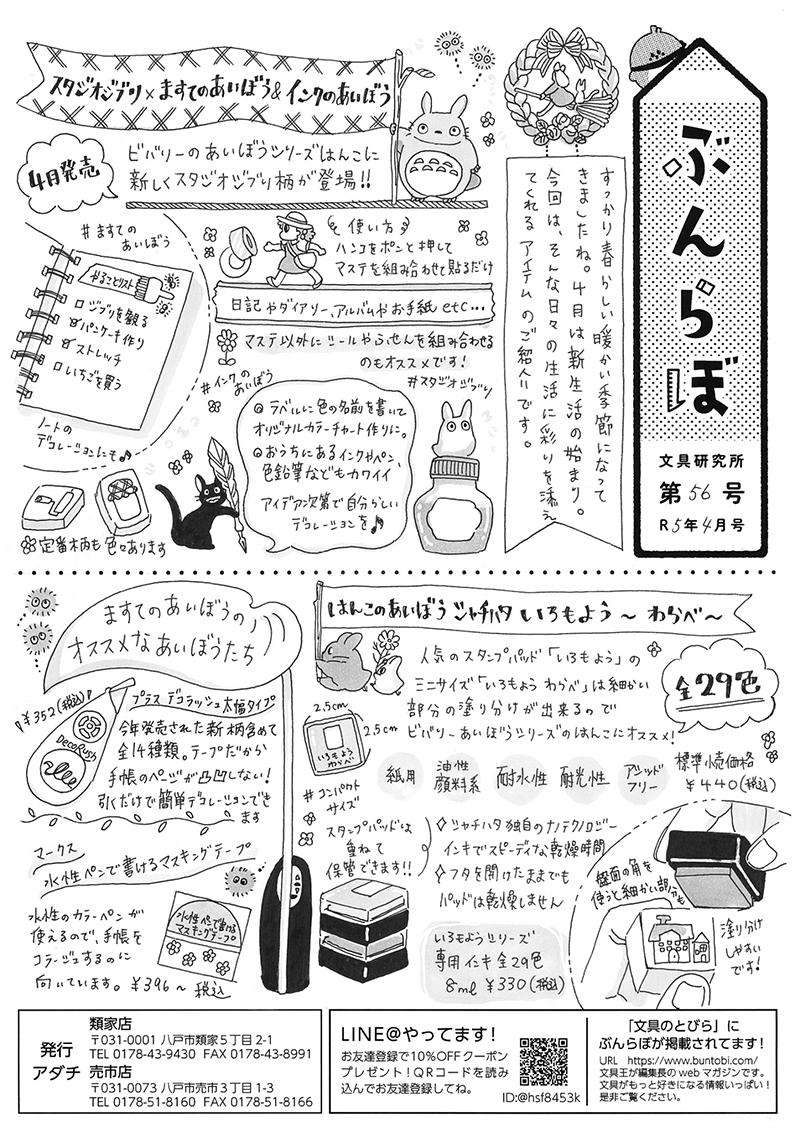 ぶんらぼ
文具研究所
第56号
R5年4月号
すっかり春らしい暖かい季節になって
きましたね。4月は新生活の始まり。
今回は、そんな日々の生活に彩りを添え
てくれるアイテムのご紹介です。
スタジオジブリ×ますてのあいぼう&インクのあいぼう
4月発売
ビバリーのあいぼうシリーズはんこに
新しくスタジオジブリ柄が登場!!
#ますての
あいぼう
やることリスト
ジブリを観る
パンケーキ作り
ストレッチ
いちごを買う
ノートの
デコレーションにも♪
使い方
ハンコをポンと押して
マステを組み合わせて貼るだけ
日記やダイアリー、アルバムやお手紙etc...
マステ以外にシールやふせんを組み合わせる
のもオススメです!
#スタジオジブリ
#インクの
あいぼう
ラベルに色の名前を書いて
オリジナルカラーチャート作りに。
おうちにあるインクやペン、
色鉛筆などもカワイイ
アイデア次第で自分らしい
デコレーションを♪
定番柄も色々あります
ますてのあいぼうの
オススメなあいぼうたち
¥352(税込)
プラス デコラッシュ太幅タイプ
DecoRush
今年発売された新柄含めて
全14種類。テープだから
手帳のページが凸凹しない!
引くだけで簡単デコレーションでき
ます
マークス
水性ペンで書けるマスキングテープ
水性のカラーペンが
使えるので、手帳を
コラージュするのに
向いています。¥396〜税込
水性ペンで書ける
マスキングテープ
はんこのあいぼう シャチハタ いろもよう〜わらべ〜
人気のスタンプパッド「いろもよう」の
ミニサイズ「いろもようわらべ」は細かい
部分の塗り分けが出来るので
ビバリーあいぼうシリーズのはんこにオススメ!
全29色
2.5cm
2.5cm
いろもよう
わらべ
#コンパクト
サイズ
紙用
油性
顔料系
耐水性
耐光性
アシッド
フリー
標準小売価格
¥440(税込)
スタンプパッドは
重ねて
保管できます!!
シャチハタ独自のナノテクノロジー
インキでスピーディな乾燥時間
フタを開けたままでも
パッドは乾燥しません
いろもようシリーズ
専用インキ 全29色
8ml ¥330(税込)
盤面の角を
使うと細かい部分も
塗り分け
しやすい
です!
発行
アダチ
類家店
〒031-0001 八戸市類家5丁目2-1
TEL 0178-43-9430 FAX 0178-43-8991
売市店
〒031-0073 八戸市売市3丁目1-3
TEL 0178-51-8160 FAX 0178-51-8166
LINE@やってます!
お友達登録で10%OFFクーポン
プレゼント!QRコードを読み
込んでお友達登録してね。
ID:@hsf8453k
「文具のとびら」に
ぶんらぼが掲載されてます!
URL https://www.buntobi.com/
文具王が編集長のwebマガジンです。
文具がもっと好きになる情報いっぱい!
是非ご覧ください。